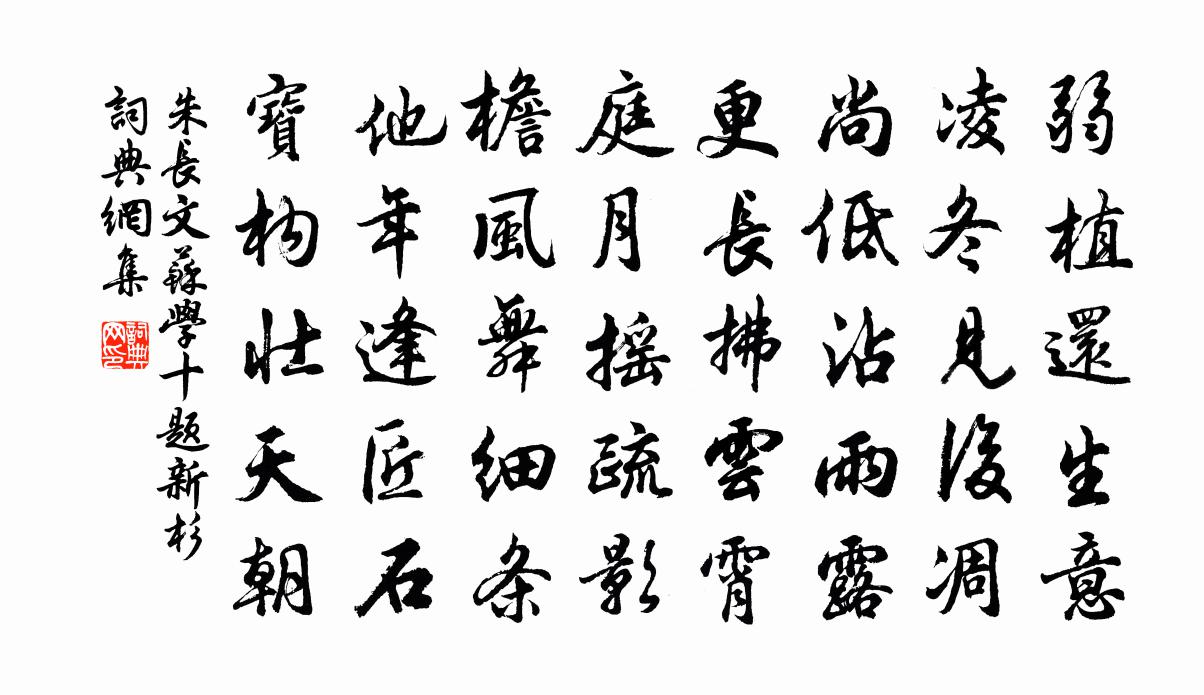 弱植還生意
凌冬見後凋
尚低沾雨露
更長拂雲霄
庭月摇疏影
檐風舞細条
他年逢匠石
寶构壮天朝
朱長文蘇學十题新杉
詞典網集
詞典网印